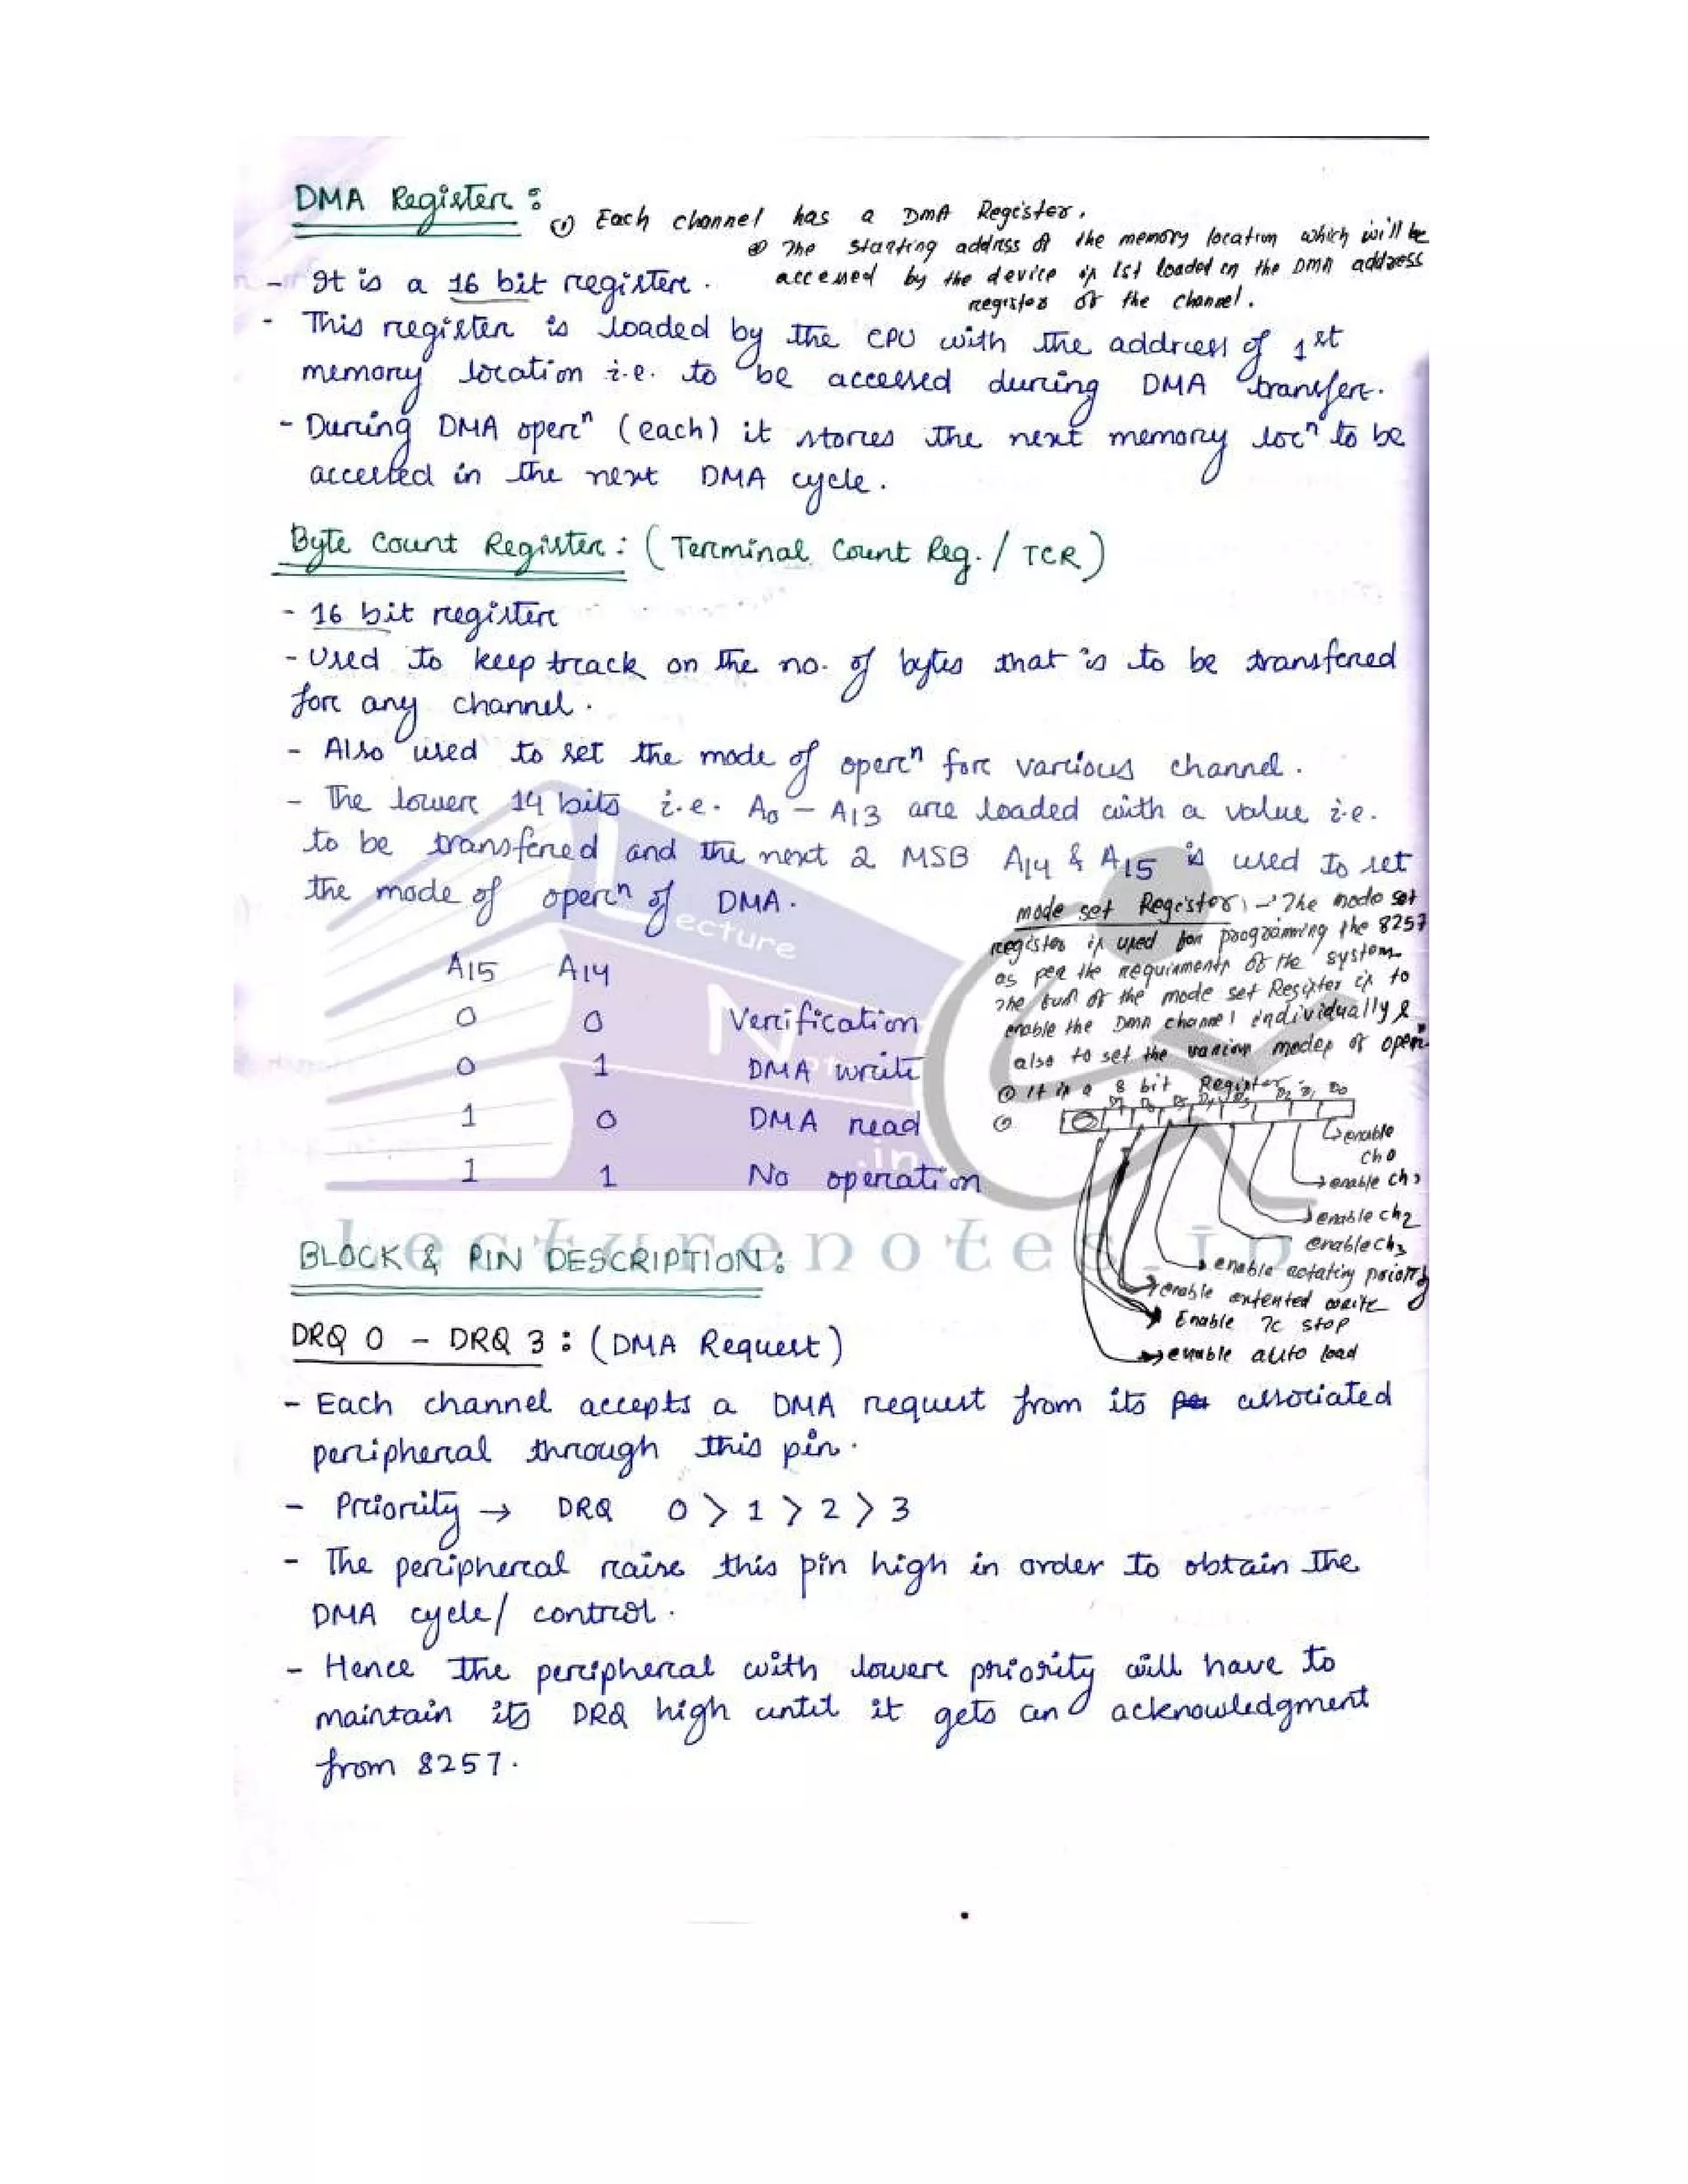 DMA Register :
① Each channel has a DMA Register.
② The starting address of the memory location which will be
accessed by the device is 1st loaded in the DMA address
register of the channel.
- It is a 16 bit register.
- This register is loaded by the CPU with the address of 1st
memory location i.e. to be accessed during DMA transfer.
- During DMA opern (each) it stores the next memory locn to be
accessed in the next DMA cycle.
Byte Count Register : (Terminal Count Reg. / TCR)
- 16 bit register
- Used to keep track on the no. of bytes that is to be transfered
for any channel.
- Also used to set the mode of opern for various channel.
- The lower 14 bits i.e. A0 - A13 are loaded with a value i.e.
to be transfered and the next 2 MSB A14 & A15 is used to set
the mode of opern of DMA.
A15 A14
0 0 Verification
0 1 DMA write
1 0 DMA read
1 1 No operation
mode set Register :- The mode set
register is used for programming the 8257
as per the requirments of the system
The fun of the mode set Register is to
enable the DMA channel individually &
also to set the various modes of opern
⊙ It is a 8 bit Register
D7 D6 D5 D4 D3 D2 D1 D0
enable
ch0
enable ch1
enable ch2
enable ch3
enable rotating priority
enable extented write
Enable TC stop
enable auto load
BLOCK & PIN DESCRIPTION :
DRQ 0 - DRQ 3 : (DMA Request)
- Each channel accepts a DMA request from its associated
peripheral through this pin.
- Priority → DRQ 0 > 1 > 2 > 3
- The peripheral raise this pin high in order to obtain the
DMA cycle/ control.
- Hence the peripheral with lower priority will have to
maintain its DRQ high until it gets an acknowledgment
from 8257.
Lecture
Notes
.in
Lecturenotes.in